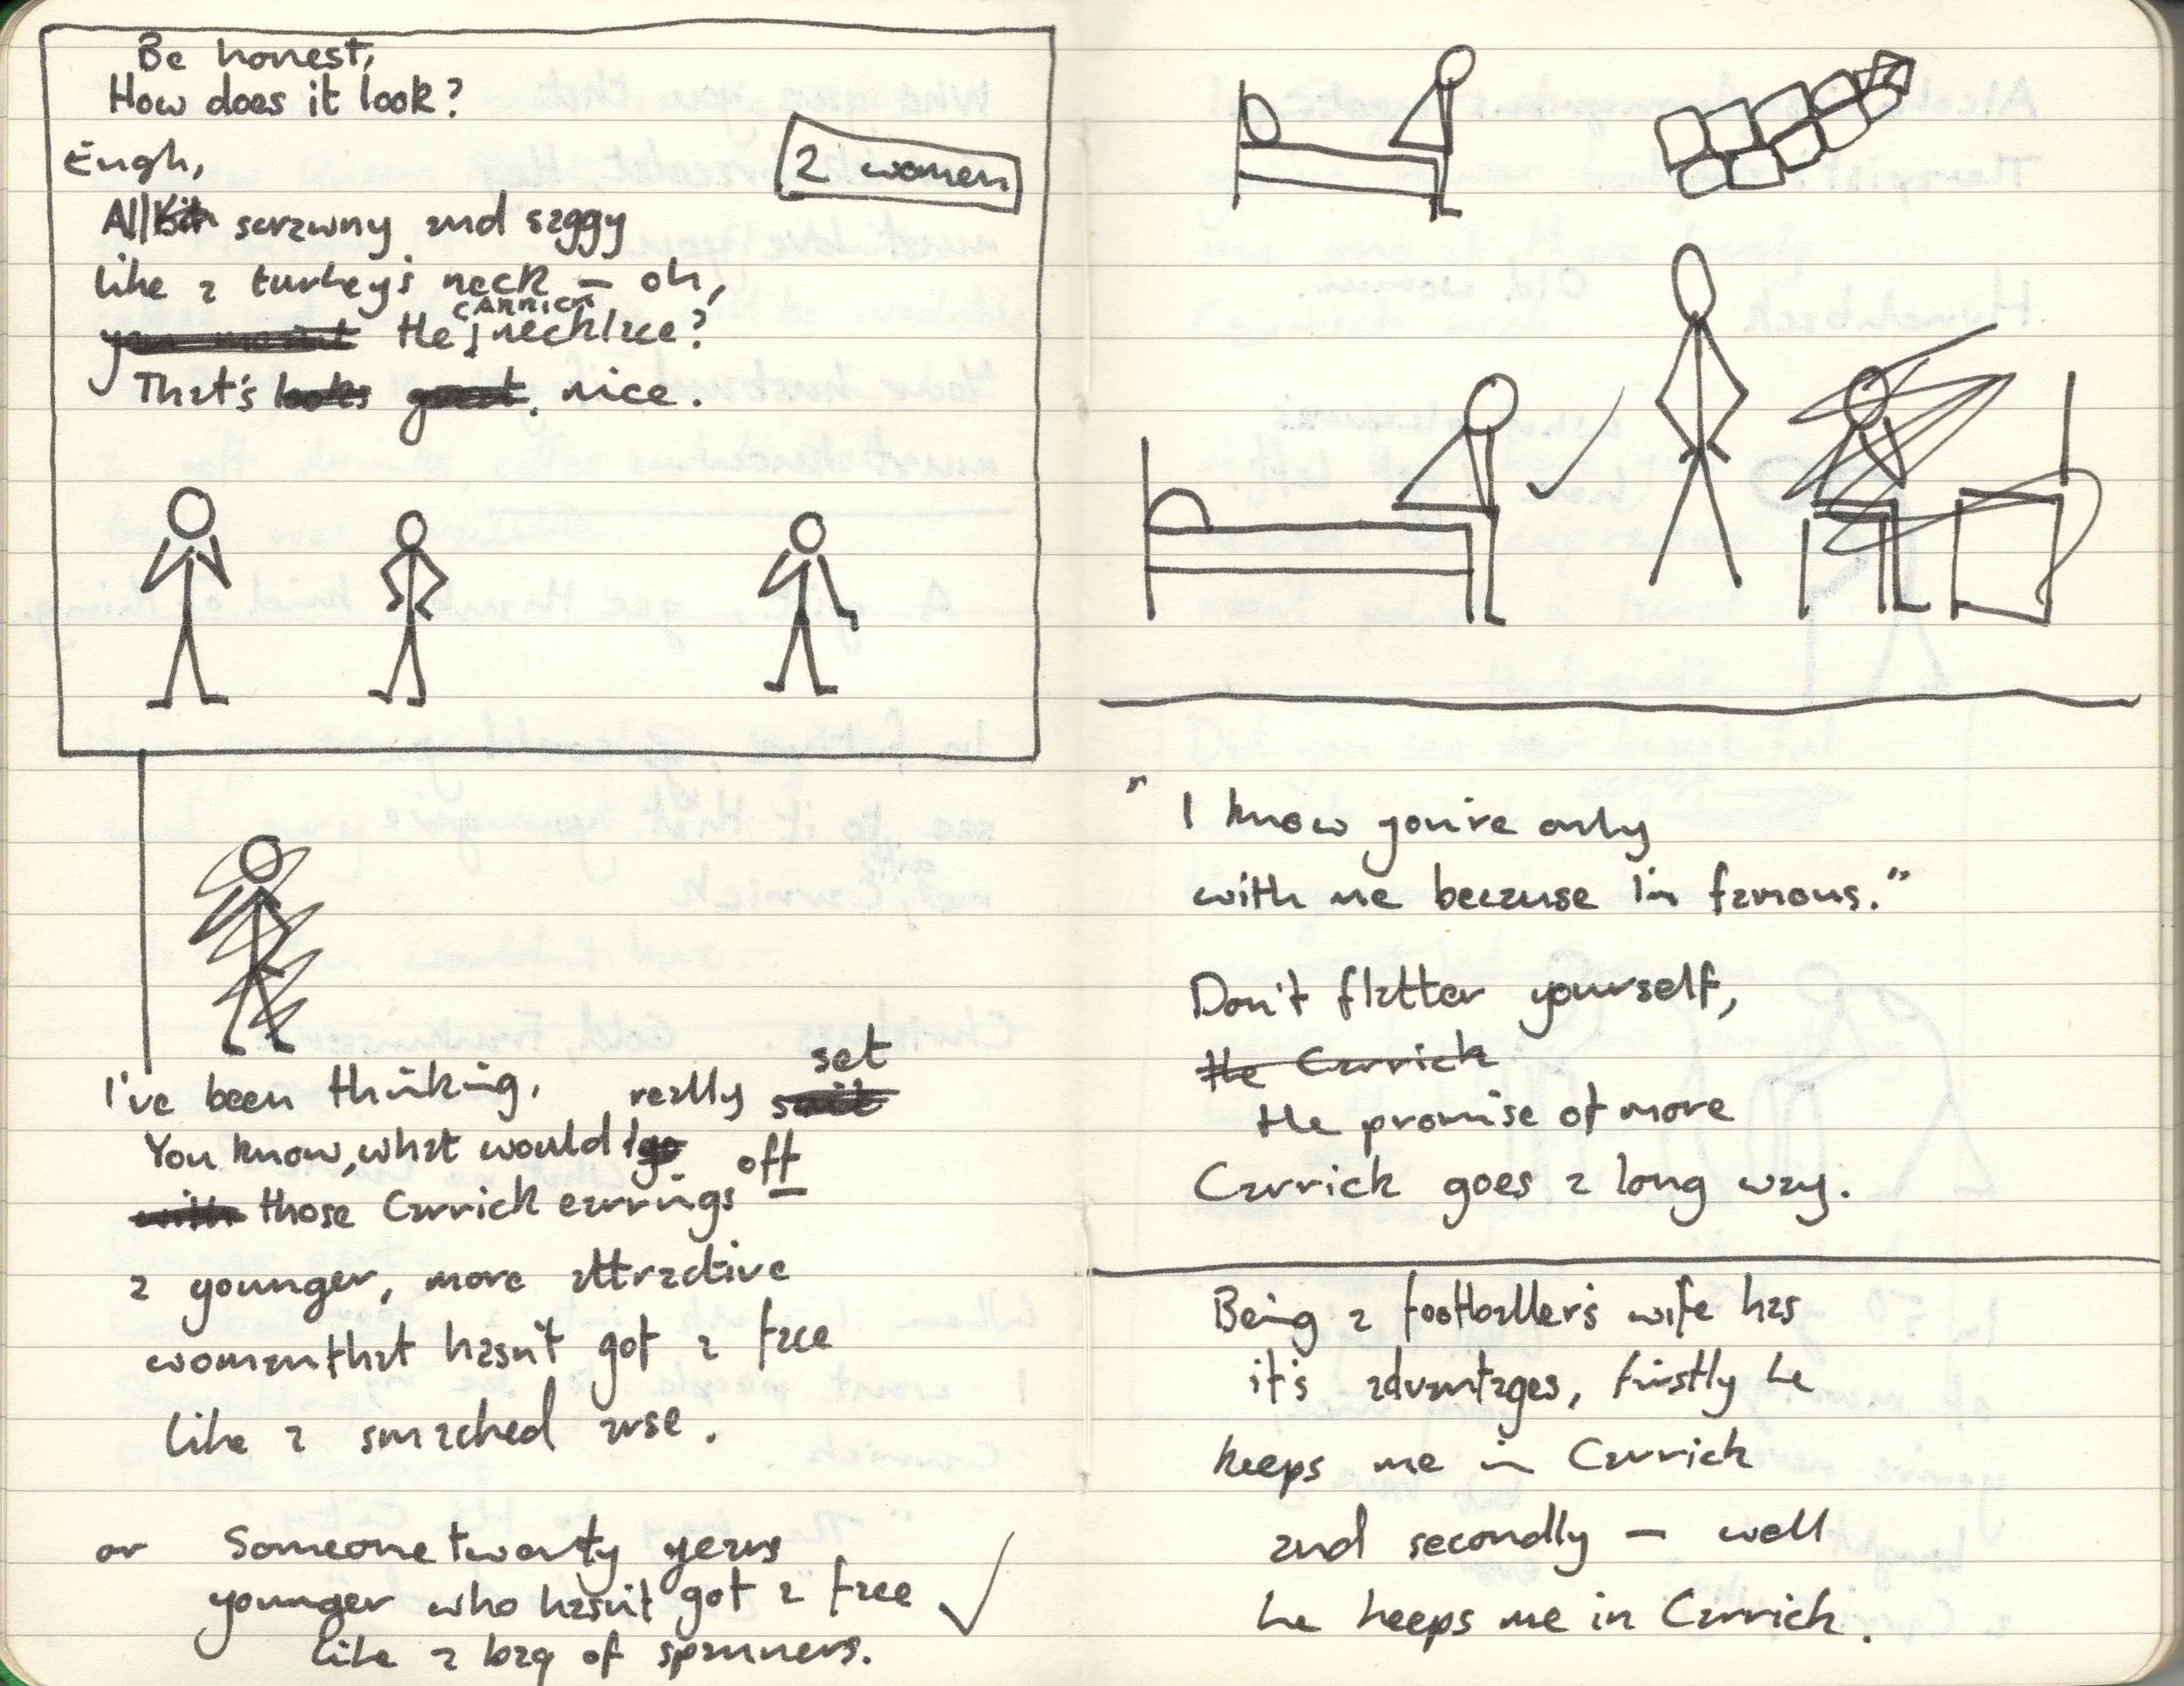 Be honest,
How does it look?
Eugh,
2 women
All Bit scrawny and saggy
like a turkey's neck – oh,
you meant the CARRICK necklace?
That's looks great. nice.
I've been thinking.
You know, what would go really suit set
with those Carrick earrings off
a younger, more attractive
woman that hasn't got a face
like a smacked arse.
or Someone twenty years
younger who hasn't got a face
like a bag of spanners.
" I know you're only
with me because I'm famous."
Don't flatter yourself,
the Carrick
the promise of more
Carrick goes a long way.
Being a footballer's wife has
it's advantages, firstly he
keeps me in Carrick
and secondly – well
he keeps me in Carrick.